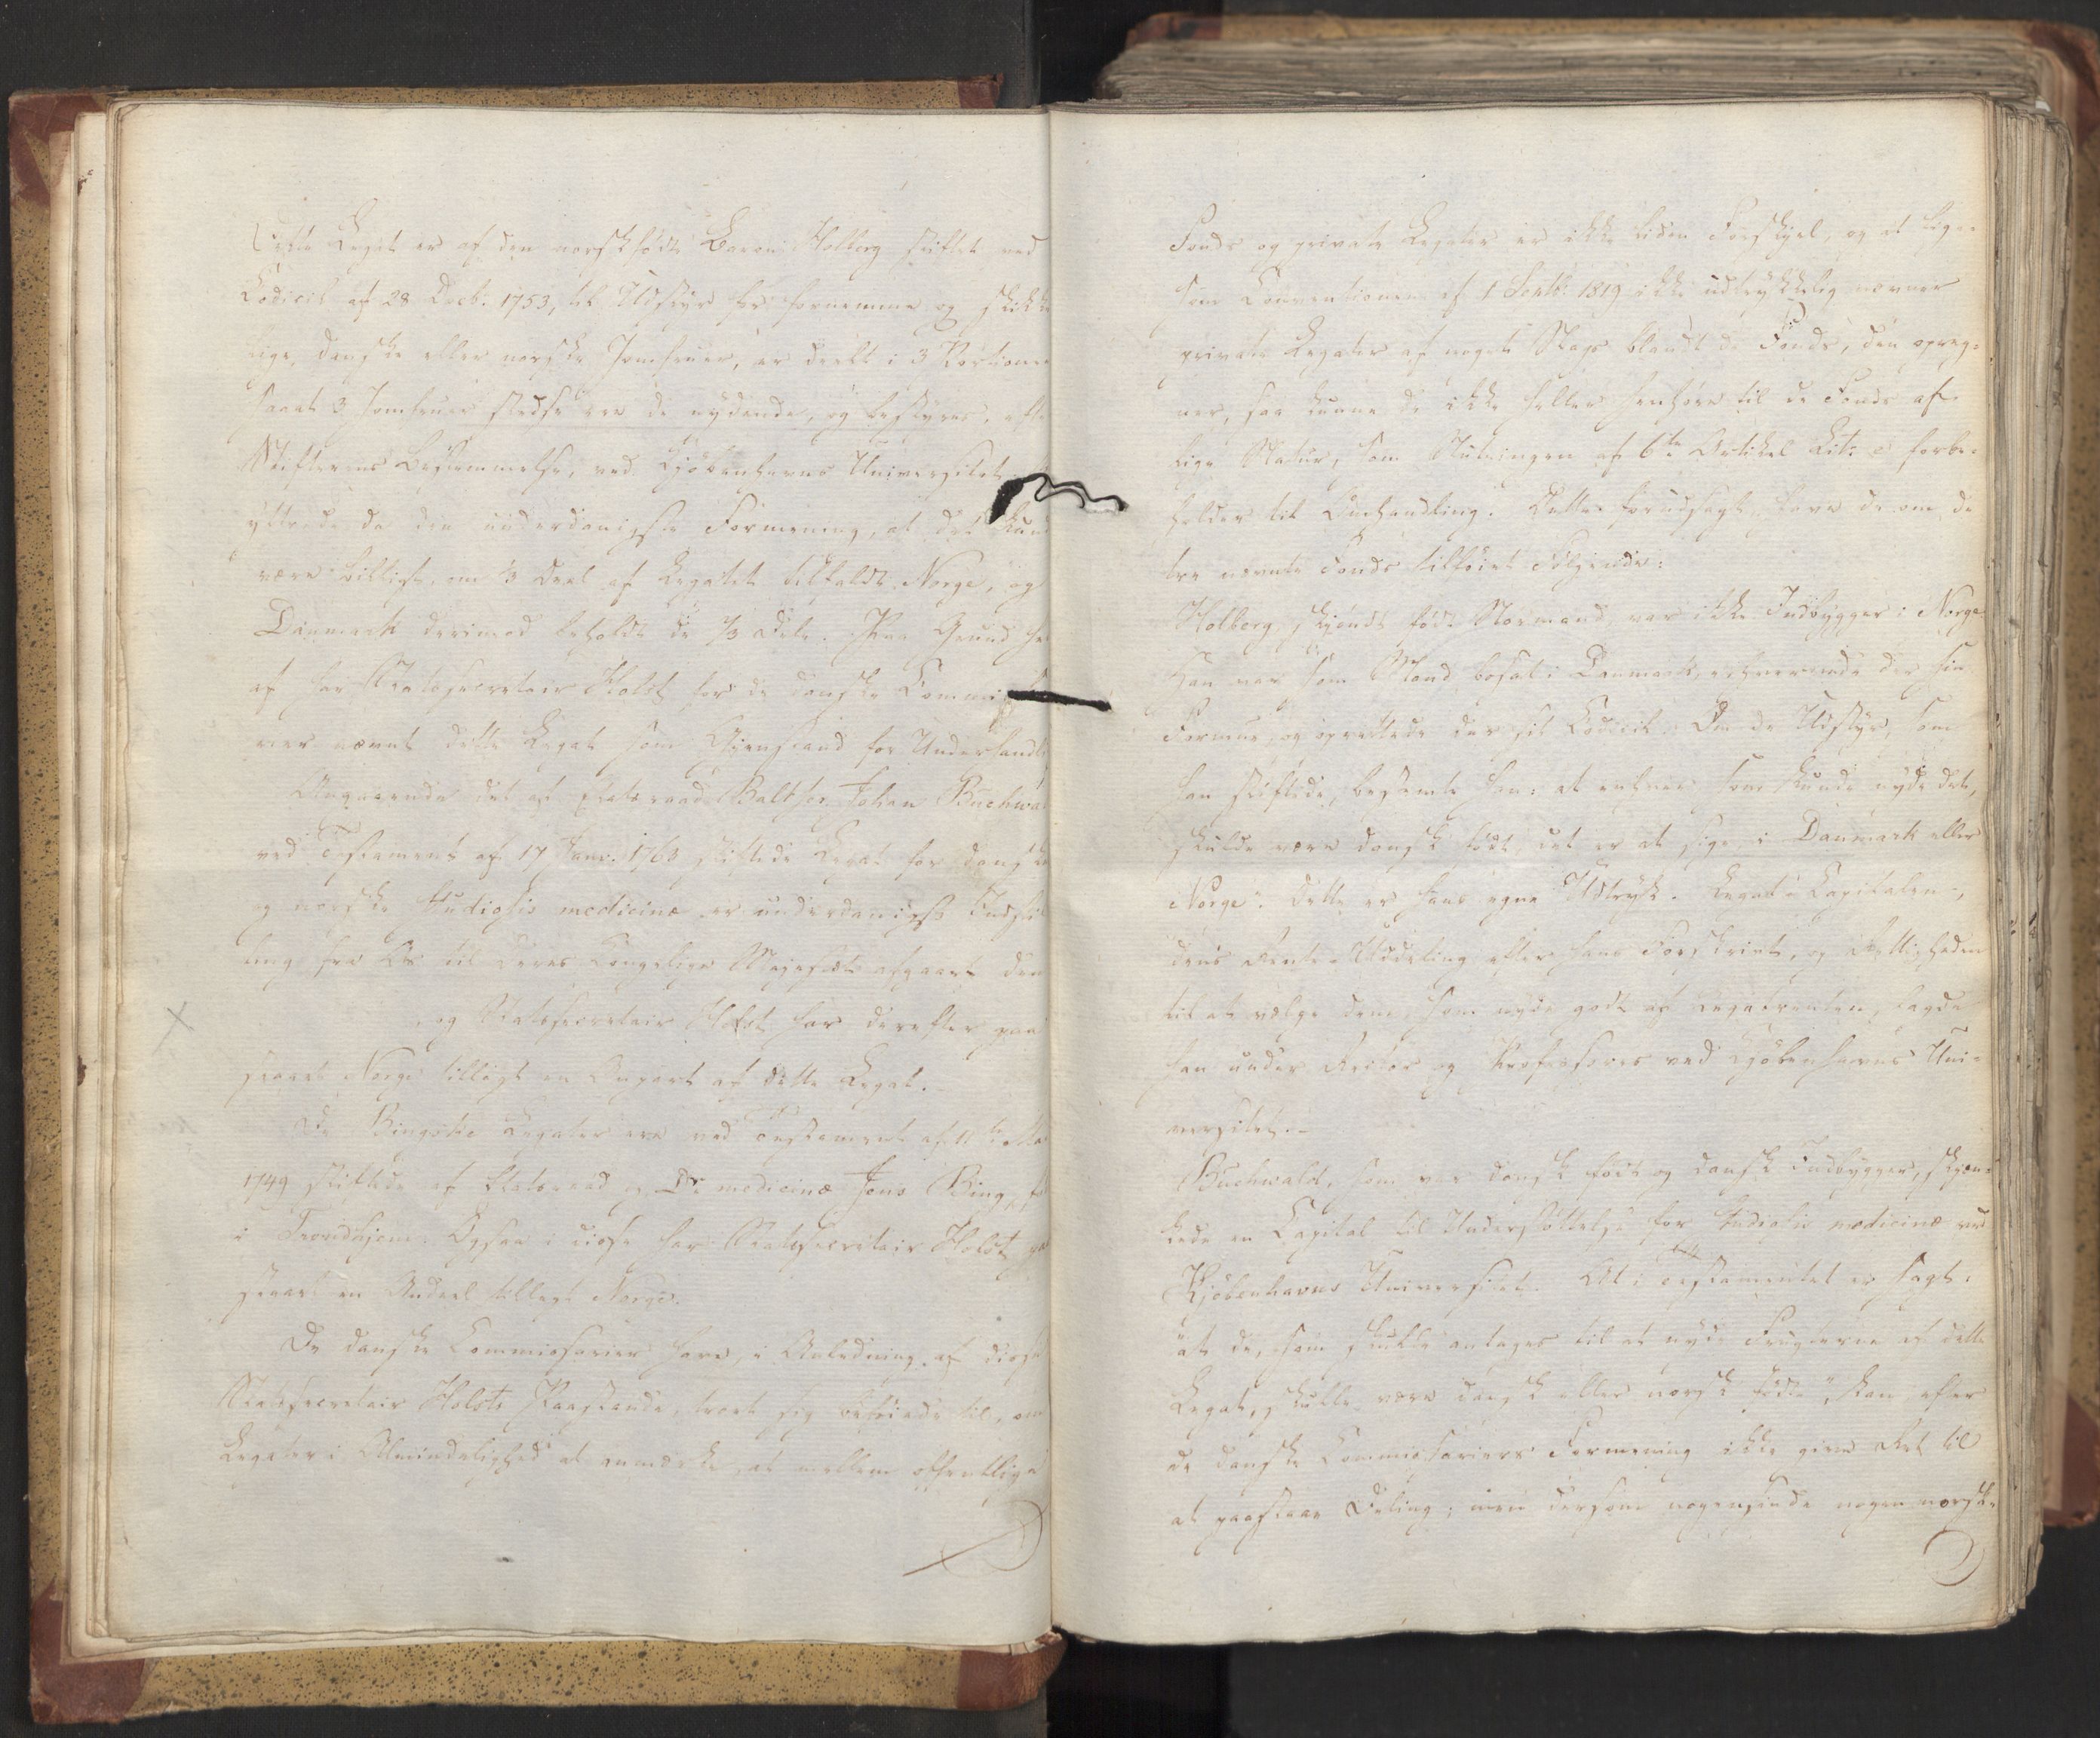 Dette Legat er af den norskfödte Baron Holberg stiftet ved
Codicil af 28 Decb. 1753, til Udstyr for fornemme og skikke
lige danske eller norske Jomfruer, er deelt i 3 Portioner
saaat 3 Jomfruer stedse ere de nydende, og bestyres, efter
Stifterens Bestemmelse, ved Kjöbenhavns Universitet
yttrede da den underdanigste Formening, at det kunde
være billigt, om 1/3 Deel af Legatet tilfaldt Norge, og
Danmark derimod beholdt de 2/3 Dele. Paa Grund her
af har Statssecretair Holst for de danske Commissa
rier nævnt dette Legat som Gjenstand for Underhandl
Angaaende det af Etatsraad Balthsr. Johan Buchwa
ved Testament af 17 Janv. 1763 stiftede Legat for danske
og norske studiosis medicinæ er underdanigst Indstil
ling fra os til Deres Kongelige Majestæt afgaaet den
og Statssecretair Holst har derefter paa
staaet Norge tillagt en Anpart af dette Legat.
De Bingske Legater ere ved Testament af 11te Ma
1749 stiftede af Etatsraad og Dr. medicinæ Jens Bing, fö
i Trondhjem. Ogsaa i disse har Statssecretair Holst paa
staaet en Andeel tillagt Norge.
De danske Commissarier have, i Anledning af disse
Statssecretair Holsts Paastande, troet sig beföiede til, om
Legater i Almindelighed at anmærke, at mellem offentlige
Fonds og private Legater er ikke liden Forskjel, og at lige-
som Conventionen af 1 Septb: 1819 ikke udtrykkelig nævner
private Legater af noget Slags blandt de Fonds, den opreg-
ner, saa kunne de ikke heller henhöre til de Fonds af
lige Natur, som Slutningen af 6te Artikel Litr. c forbe-
holder til Behandling. Dette forudsagt, have de om de
tre nævnte Fonds tilföiet Fölgende:
Holberg, skjöndt föd Normand, var ikke Indbygger i Norge
Han var som Mand bosat i Danmark, erhvervede der sin
Formue, og oprettede der sit Codicil. Om de Udstyr, som
han stiftede, bestemte han: at enhver som kunde nyde det,
skulde være dansk födt, det er at sige, i Danmark eller
Norge". Dette er hans egne Udtryk. Legat-Capitalen,
dens Rente-Uddeling efter hans Forskrivt, og Rettigheden
til at vælge dem, som nyde godt af Legatrenten, lagde
han under Rector og Professores ved Kjöbenhavns Uni-
versitet. -
Buchwald, som var dansk födt og dansk Indbygger, skjæn-
kede en Capital til Understöttelse for studiosis medicinæ ved
Kjöbenhavns Universitet. At i Testamentet er sagt:
"at de, som skulle antages til at nyde Frugterne af dette
Legat, skulle være dansk eller norsk födte", kan efter
de danske Commissariers Formening ikke give Ret til
at paastaae Deling; men dersom nogensinde nogen norsk